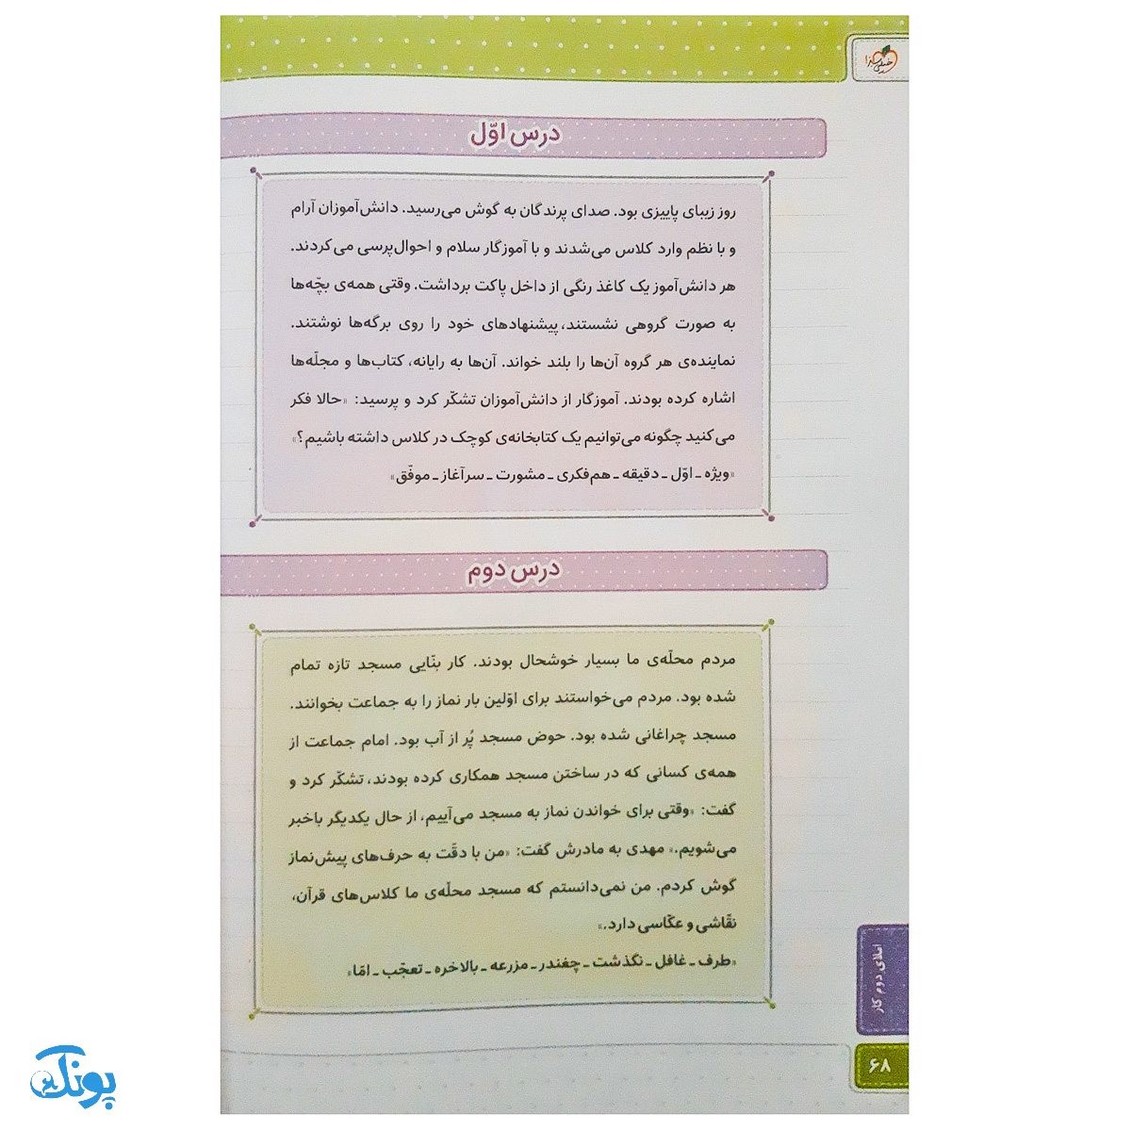 خیلی سبز
درس اوّل
روز زیبای پاییزی بود. صدای پرندگان به گوش می‌رسید. دانش‌آموزان آرام
و با نظم وارد کلاس می‌شدند و با آموزگار سلام و احوال‌پرسی می‌کردند.
هر دانش‌آموز یک کاغذ رنگی از داخل پاکت برداشت. وقتی همه‌ی بچّه‌ها
به صورت گروهی نشستند، پیشنهادهای خود را روی برگه‌ها نوشتند.
نماینده‌ی هر گروه آن‌ها را بلند خواند. آن‌ها به رایانه، کتاب‌ها و مجلّه‌ها
اشاره کرده بودند. آموزگار از دانش‌آموزان تشکّر کرد و پرسید: «حالا فکر
می‌کنید چگونه می‌توانیم یک کتابخانه‌ی کوچک در کلاس داشته باشیم؟»
«ویژه ـ اوّل ـ دقیقه ـ هم‌فکری ـ مشورت ـ سرآغاز ـ موفّق»
درس دوم
مردم محلّه‌ی ما بسیار خوشحال بودند. کار بنّایی مسجد تازه تمام
شده بود. مردم می‌خواستند برای اوّلین بار نماز را به جماعت بخوانند.
مسجد چراغانی شده بود. حوض مسجد پُر از آب بود. امام جماعت از
همه‌ی کسانی که در ساختن مسجد همکاری کرده بودند، تشکّر کرد و
گفت: «وقتی برای خواندن نماز به مسجد می‌آییم، از حال یکدیگر باخبر
می‌شویم.» مهدی به مادرش گفت: «من با دقّت به حرف‌های پیش‌نماز
گوش کردم. من نمی‌دانستم که مسجد محلّه‌ی ما کلاس‌های قرآن،
نقّاشی و عکّاسی دارد.»
«طرف ـ غافل ـ نگذشت ـ چغندر ـ مزرعه ـ بالاخره ـ تعجّب ـ امّا»
املای دوم کار
۶۸
پونک